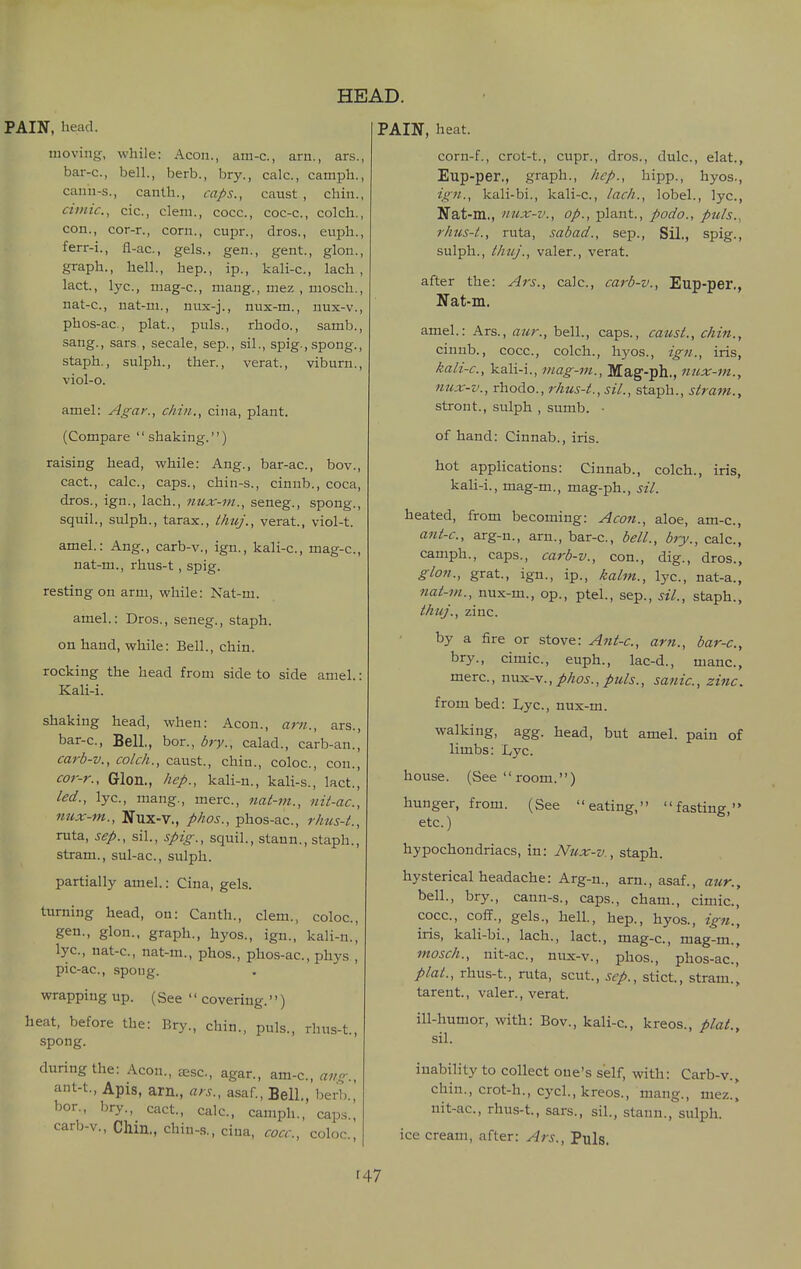 HEAD.
PAIN, head.
moving, while: Acon., am-c., arn., ars.,
bar-c., bell., berb., bry., calc., camph.,
cann-s., canth., caps., caust , chin.,
cimic., cic., clem., cocc., coc-c., colch.,
con., cor-r., corn., cupr., dros., euph.,
ferr-i., fl-ac., gels., gen., gent., glon.,
graph., hell., hep., ip., kali-c., lach ,
lact., lyc., mag-c., mang., mez , mosch.,
nat-c., nat-m., nux-j., nux-m., nux-v.,
phos-ac., plat., puls., rhodo., samb.,
sang., sars , secale, sep., sil., spig., spong.,
staph., sulph., ther., verat., viburn.,
viol-o.
amel: Agar., chin., cina, plant.
(Compare "shaking.")
raising head, while: Ang., bar-ac., bov.,
cact., calc., caps., chin-s., cinnb., coca,
dros., ign., lach., nux-m., seneg., spong.,
squil., sulph., tarax., thuj., verat., viol-t.
amel.: Ang., carb-v., ign., kali-c., mag-c.,
nat-m., rhus-t , spig.
resting on arm, while: Nat-m.
amel.: Dros., seneg., staph.
on hand, while: Bell., chin.
rocking the head from side to side amel.:
Kali-i.
shaking head, when: Acon., arn., ars.,
bar-c., Bell., bor., bry., calad., carb-an.,
carb-v., colch., caust., chin., coloc., con.,
cor-r., Glon., hep., kali-n., kali-s., lact.,
led., lyc., mang., merc., nat-m., nit-ac.,
nux-m., Nux-v., phos., phos-ac., rhus-t.,
ruta, sep., sil., spig., squil., stann., staph.,
stram., sul-ac., sulph.
partially amel.: Cina, gels.
turning head, on: Canth., clem., coloc.,
gen., glon., graph., hyos., ign., kali-n.,
lyc., nat-c., nat-m., phos., phos-ac., phys ,
pic-ac., spong.
wrapping up. (See "covering.")
heat, before the: Bry., chin., puls., rhus-t.,
spong.
during the: Acon., æsc., agar., am-c., ang.,
ant-t., Apis, arn., ars., asaf., Bell., berb.,
bor., bry., cact., calc., camph., caps.,
carb-v., Chin., chin-s., cina, cocc., coloc.,
PAIN, heat.
corn-f., crot-t., cupr., dros., dulc., elat.,
Eup-per., graph., hep., hipp., hyos.,
ign., kali-bi., kali-c., lach., lobel., lyc.,
Nat-m., nux-v., op., plant., podo., puls.,
rhus-t., ruta, sabad., sep., Sil., spig.,
sulph., thuj., valer., verat.
after the: Ars., calc., carb-v., Eup-per.,
Nat-m.
amel.: Ars., aur., bell., caps., caust., chin.,
cinnb., cocc., colch., hyos., ign., iris,
kali-c., kali-i., mag-m., Mag-ph., nux-m.,
nux-v., rhodo., rhus-t., sil., staph., stram.,
stront., sulph , sumb.
of hand: Cinnab., iris.
hot applications: Cinnab., colch., iris,
kali-i., mag-m., mag-ph., sil.
heated, from becoming: Acon., aloe, am-c.,
ant-c., arg-n., arn., bar-c., bell., bry., calc.,
camph., caps., carb-v., con., dig., dros.,
glon., grat., ign., ip., kalm., lyc., nat-a.,
nat-m., nux-m., op., ptel., sep., sil., staph.,
thuj., zinc.
by a fire or stove: Ant-c., arn., bar-c.,
bry., cimic., euph., lac-d., manc.,
merc., nux-v., phos., puls., sanic., zinc.
from bed: Lyc., nux-m.
walking, agg. head, but amel. pain of
limbs: Lyc.
house. (See "room.")
hunger, from. (See "eating," "fasting,"
etc.)
hypochondriacs, in: Nux-v., staph.
hysterical headache: Arg-n., arn., asaf., aur.,
bell., bry., cann-s., caps., cham., cimic.,
cocc., coff., gels., hell., hep., hyos., ign.,
iris, kali-bi., lach., lact., mag-c., mag-m.,
mosch., nit-ac., nux-v., phos., phos-ac.,
plat., rhus-t., ruta, scut., sep., stict., stram.,
tarent., valer., verat.
ill-humor, with: Bov., kali-c., kreos., plat.,
sil.
inability to collect one's self, with: Carb-v.,
chin., crot-h., cycl., kreos., mang., mez.,
nit-ac., rhus-t., sars., sil., stann., sulph.
ice cream, after: Ars., Puls.
147